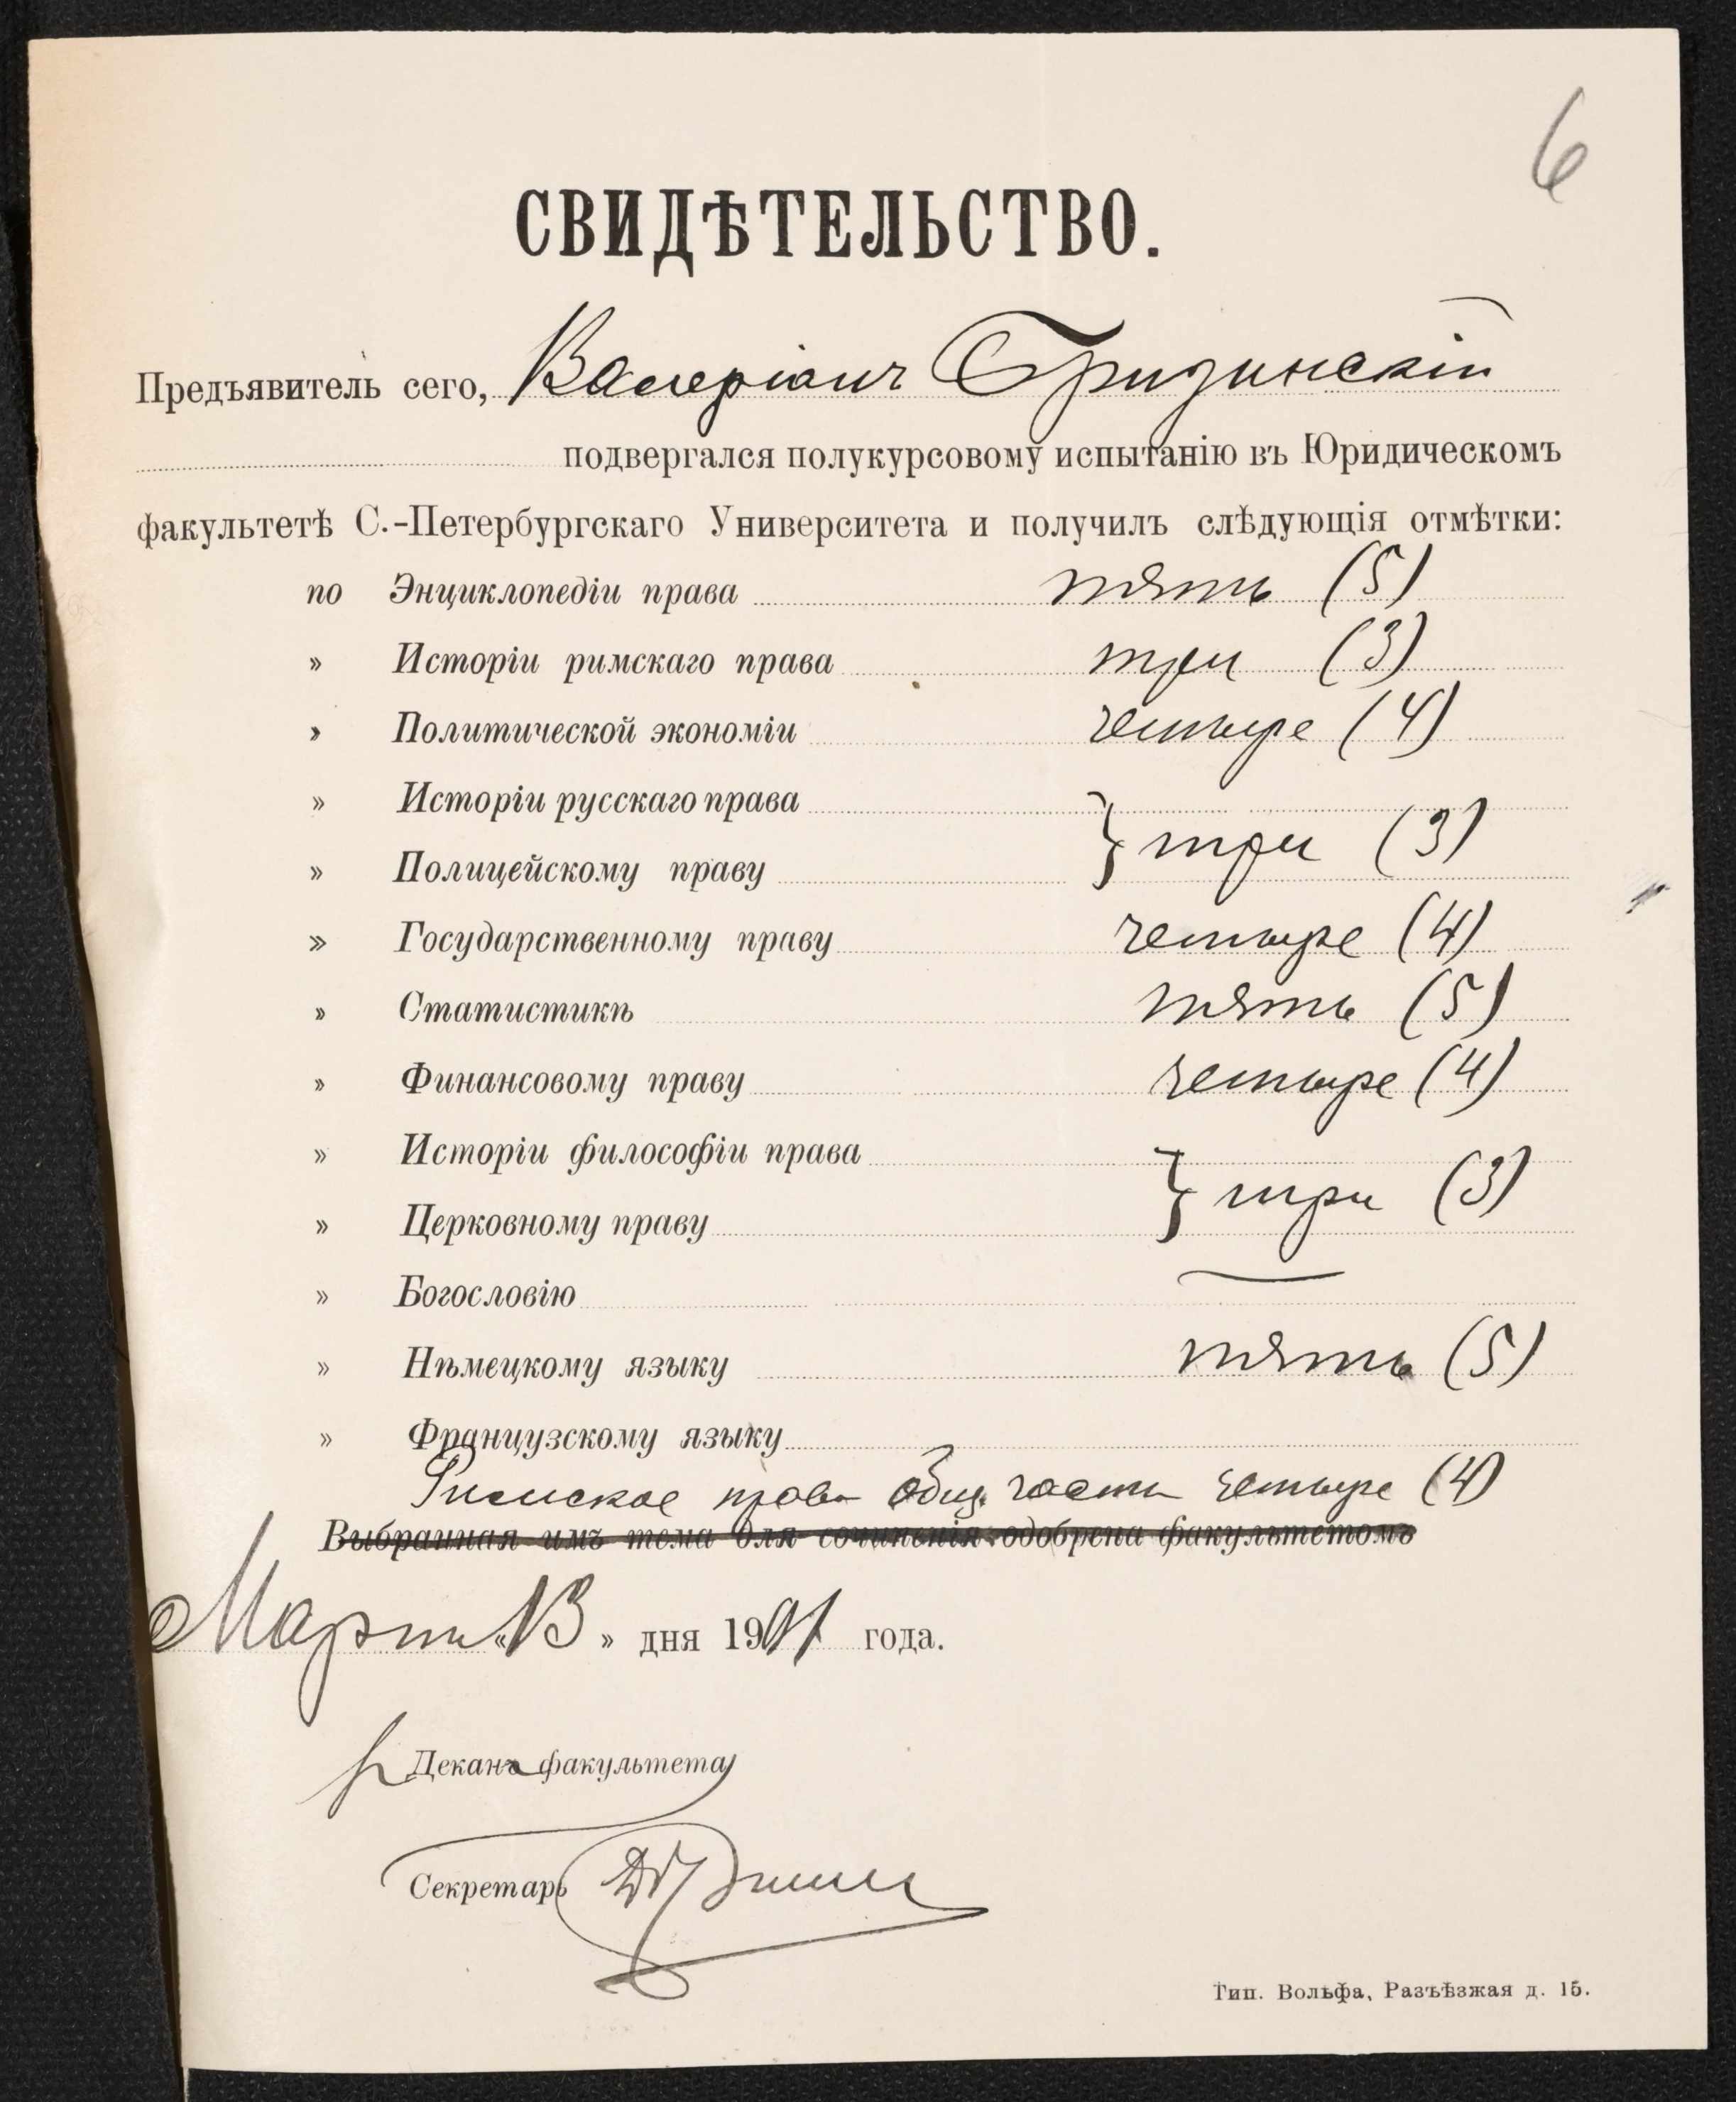 6
СВИДѢТЕЛЬСТВО.
Предъявитель сего, Валеріанъ
подвергался полукурсовому испытанію въ Юридическомъ
факультетѣ С.-Петербургскаго Университета и получилъ слѣдующія отмѣтки:
по Энциклопедіи права пять (5)
» Исторіи римскаго права три (3)
» Политической экономіи четыре (4)
» Исторіи русскаго права
} три (3)
» Полицейскому праву
» Государственному праву четыре (4)
» Статистикѣ пять (5)
» Финансовому праву четыре (4)
» Исторіи философіи права
} три (3)
» Церковному праву
» Богословію —
» Нѣмецкому языку пять (5)
» Французскому языку
Римское право общ. части четыре (4)
Выбранная имъ тема для сочиненія одобрена факультетомъ
Марта «13» дня 1901 года.
Деканъ факультета
Секретарь
Тип. Вольфа, Разъѣзжая д. 15.